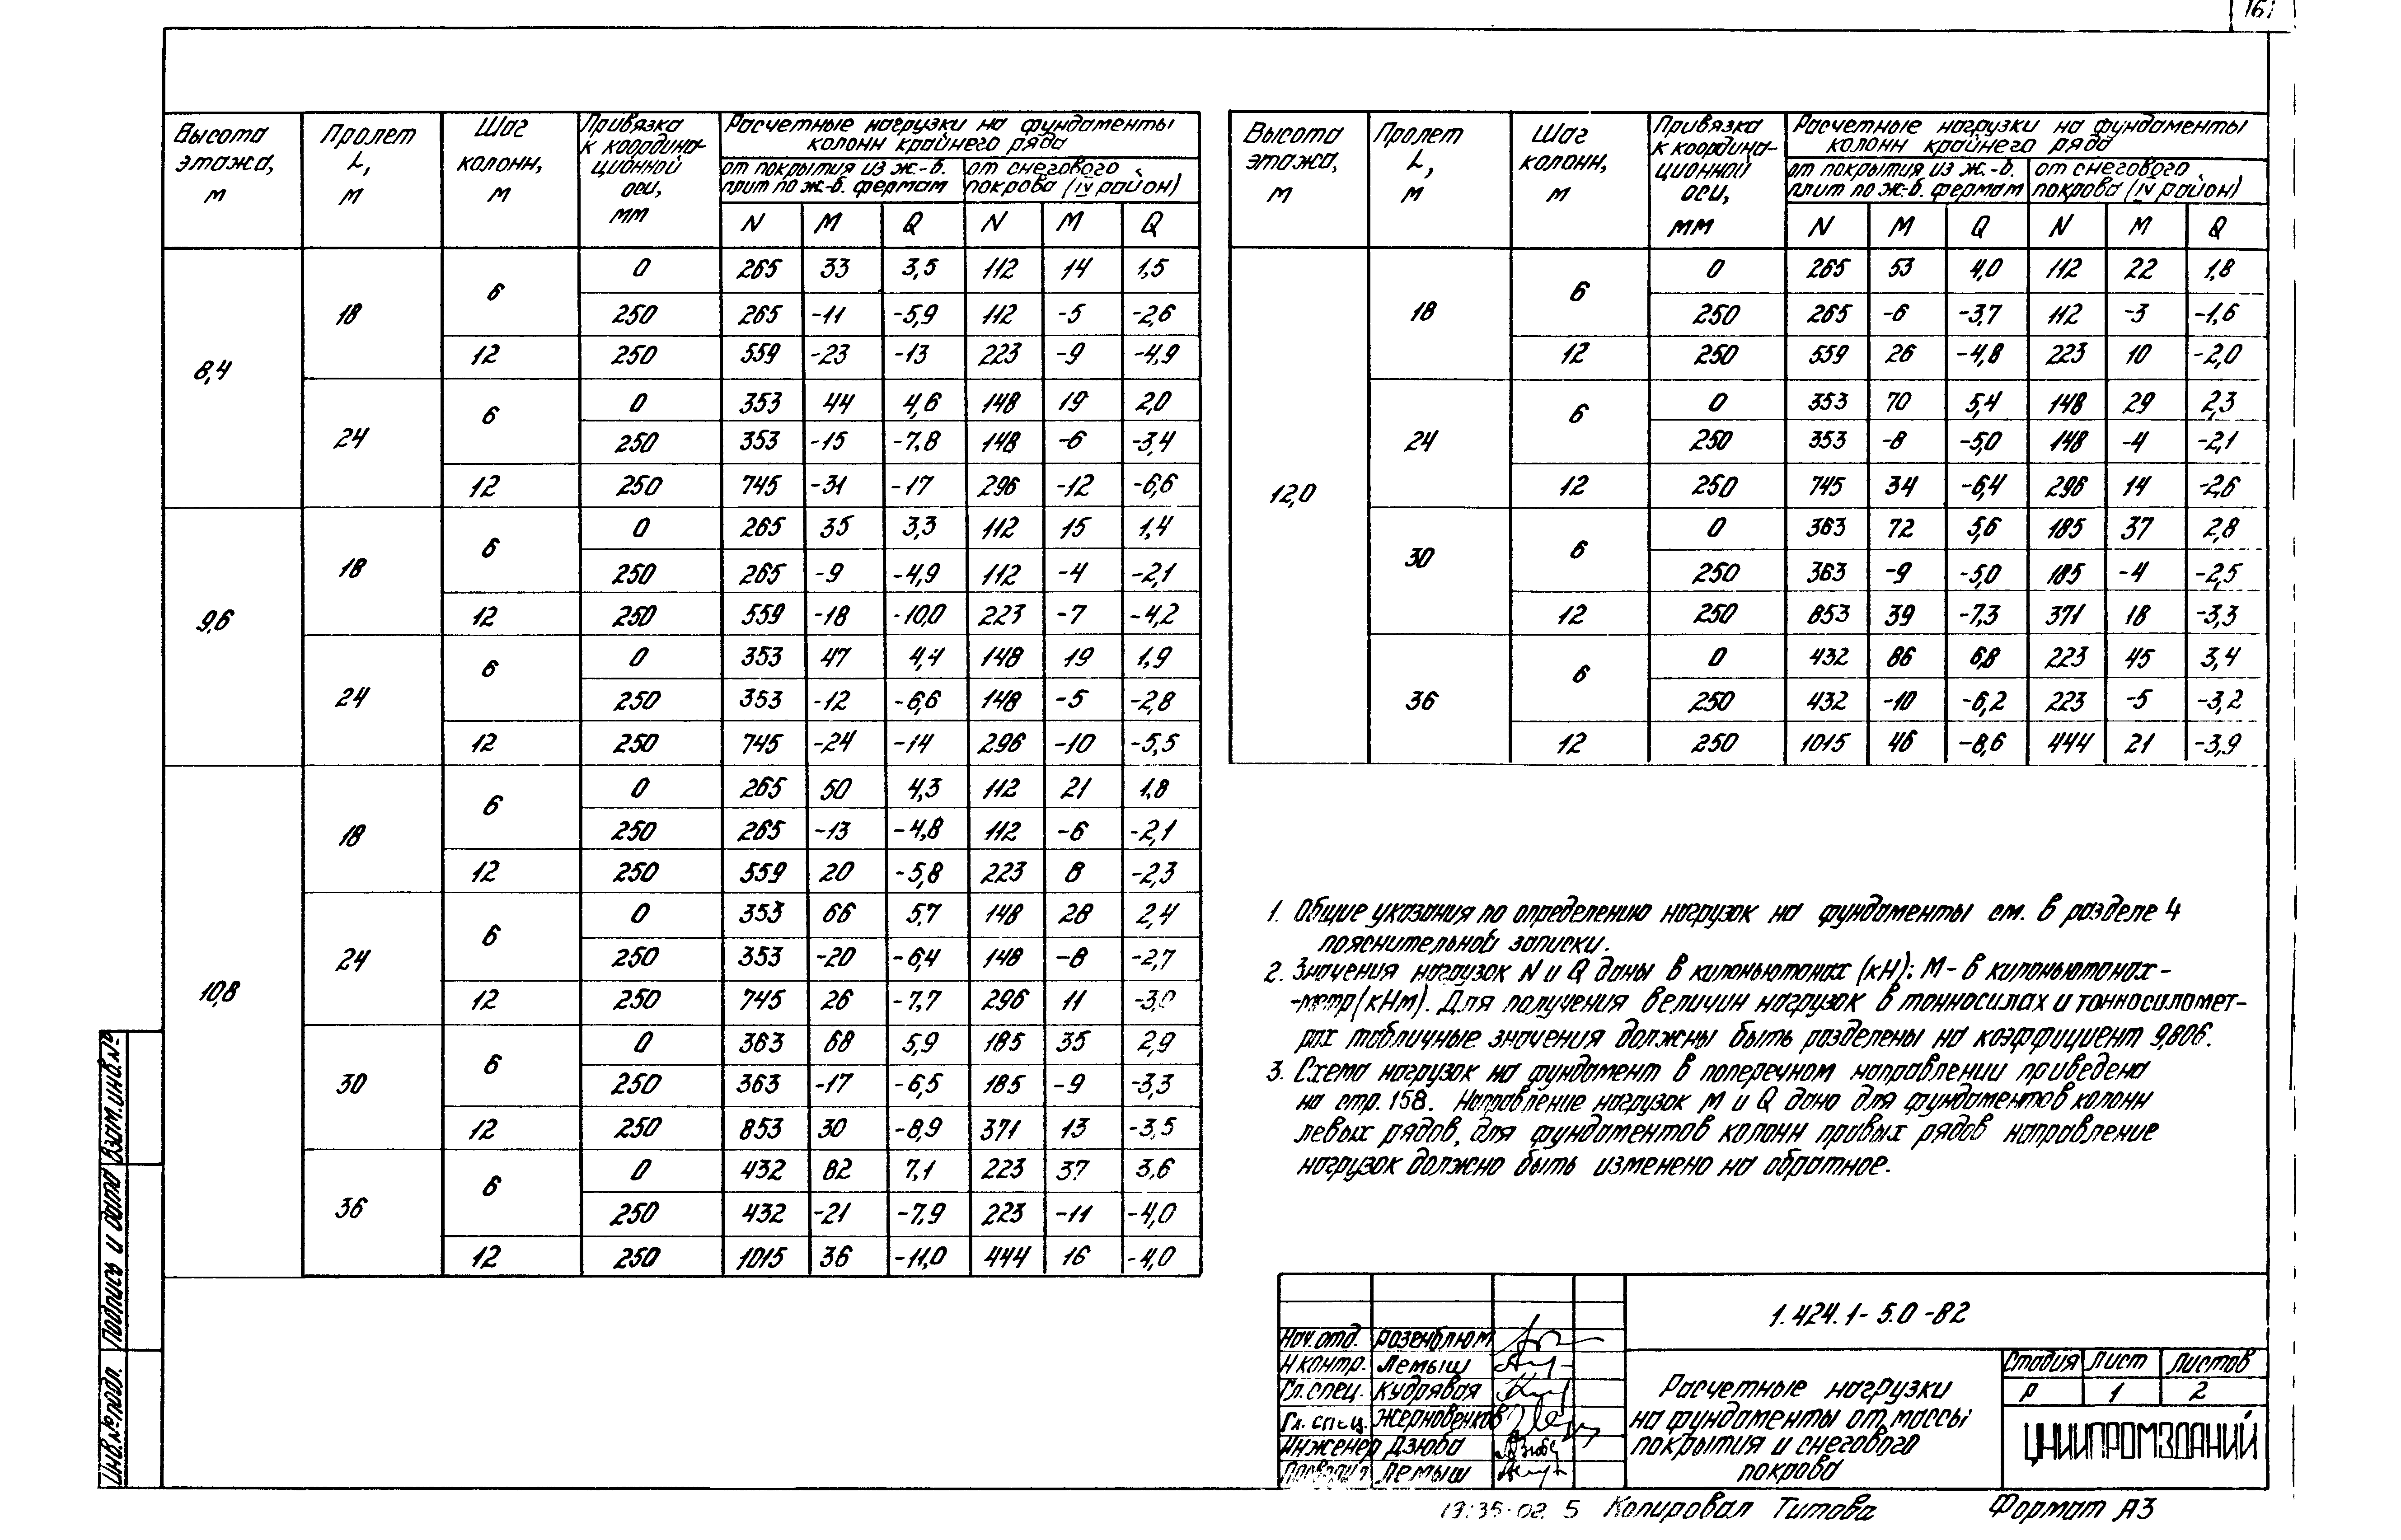 161
Высота этажа, м | Пролет L, м | Шаг колонн, м | Привязка к координационной оси, мм | Расчетные нагрузки на фундаменты колонн крайнего ряда
от покрытия из ж.-б. плит по ж.-б. фермам | от снегового покрова (IV район)
N | M | Q | N | M | Q
8,4 | 18 | 6 | 0 | 265 | 33 | 3,5 | 112 | 14 | 1,5
250 | 265 | -11 | -5,9 | 112 | -5 | -2,6
12 | 250 | 559 | -23 | -13 | 223 | -9 | -4,9
24 | 6 | 0 | 353 | 44 | 4,6 | 148 | 19 | 2,0
250 | 353 | -15 | -7,8 | 148 | -6 | -3,4
12 | 250 | 745 | -31 | -17 | 296 | -12 | -6,6
9,6 | 18 | 6 | 0 | 265 | 35 | 3,3 | 112 | 15 | 1,4
250 | 265 | -9 | -4,9 | 112 | -4 | -2,1
12 | 250 | 559 | -18 | -10,0 | 223 | -7 | -4,2
24 | 6 | 0 | 353 | 47 | 4,4 | 148 | 19 | 1,9
250 | 353 | -12 | -6,6 | 148 | -5 | -2,8
12 | 250 | 745 | -24 | -14 | 296 | -10 | -5,5
10,8 | 18 | 6 | 0 | 265 | 50 | 4,3 | 112 | 21 | 1,8
250 | 265 | -13 | -4,8 | 112 | -6 | -2,1
12 | 250 | 559 | 20 | -5,8 | 223 | 8 | -2,3
24 | 6 | 0 | 353 | 66 | 5,7 | 148 | 28 | 2,4
250 | 353 | -20 | -6,4 | 148 | -8 | -2,7
12 | 250 | 745 | 26 | -7,7 | 296 | 11 | -3,0
30 | 6 | 0 | 363 | 68 | 5,9 | 185 | 35 | 2,9
250 | 363 | -17 | -6,5 | 185 | -9 | -3,3
12 | 250 | 853 | 30 | -8,9 | 371 | 13 | -3,5
36 | 6 | 0 | 432 | 82 | 7,1 | 223 | 37 | 3,6
250 | 432 | -21 | -7,9 | 223 | -11 | -4,0
12 | 250 | 1015 | 36 | -11,0 | 444 | 16 | -4,0
Высота этажа, м | Пролет L, м | Шаг колонн, м | Привязка к координационной оси, мм | Расчетные нагрузки на фундаменты колонн крайнего ряда
от покрытия из ж.-б. плит по ж.-б. фермам | от снегового покрова (IV район)
N | M | Q | N | M | Q
12,0 | 18 | 6 | 0 | 265 | 53 | 4,0 | 112 | 22 | 1,8
250 | 265 | -6 | -3,7 | 112 | -3 | -1,6
12 | 250 | 559 | 26 | -4,8 | 223 | 10 | -2,0
24 | 6 | 0 | 353 | 70 | 5,4 | 148 | 29 | 2,3
250 | 353 | -8 | -5,0 | 148 | -4 | -2,1
12 | 250 | 745 | 34 | -6,4 | 296 | 14 | -2,6
30 | 6 | 0 | 363 | 72 | 5,6 | 185 | 37 | 2,8
250 | 363 | -9 | -5,0 | 185 | -4 | -2,5
12 | 250 | 853 | 39 | -7,3 | 371 | 18 | -3,3
36 | 6 | 0 | 432 | 86 | 6,8 | 223 | 45 | 3,4
250 | 432 | -10 | -6,2 | 223 | -5 | -3,2
12 | 250 | 1015 | 46 | -8,6 | 444 | 21 | -3,9
1. Общие указания по определению нагрузок на фундаменты см. в разделе 4
пояснительной записки.
2. Значения нагрузок N и Q даны в килоньютонах (кН); М - в килоньютонах-
-метр (кНм). Для получения величин нагрузок в тонносилах и тонносиломет-
рах табличные значения должны быть разделены на коэффициент 9,806.
3. Схема нагрузок на фундамент в поперечном направлении приведена
на стр. 158. Направление нагрузок М и Q дано для фундаментов колонн
левых рядов, для фундаментов колонн правых рядов направление
нагрузок должно быть изменено на обратное.
Инв.№ подл. | Подпись и дата | Взам.инв.№
1.424.1-5.0-82
Нач.отд. Розенблюм
Н контр. Лемыш
Гл.спец. Кудрявая
Гл. спец. Жерновенков
Инженер Дзюба
Проверил Лемыш
Расчетные нагрузки
на фундаменты от массы
покрытия и снегового
покрова
Стадия | Лист | Листов
Р | 1 | 2
ЦНИИПРОМЗДАНИЙ
Копировал Титова Формат А3